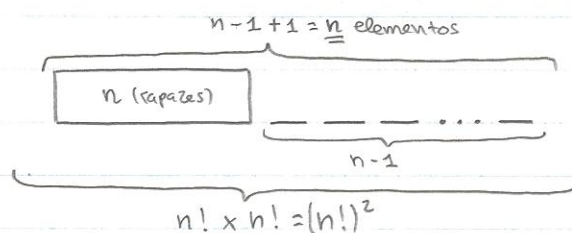 n-1+1 = n elementos
n (rapazes)
...
n-1
n! x n! = (n!)²